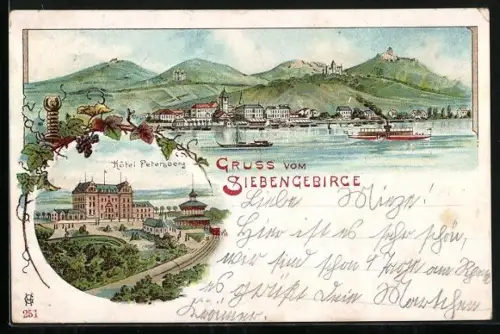 Hôtel Petersberg
GRUSS VOM
SIEBENGEBIRGE
Liebe Mieze!
Hier ist es sehr schön,
wir sind schon 4 am
es grüßt Dein
251